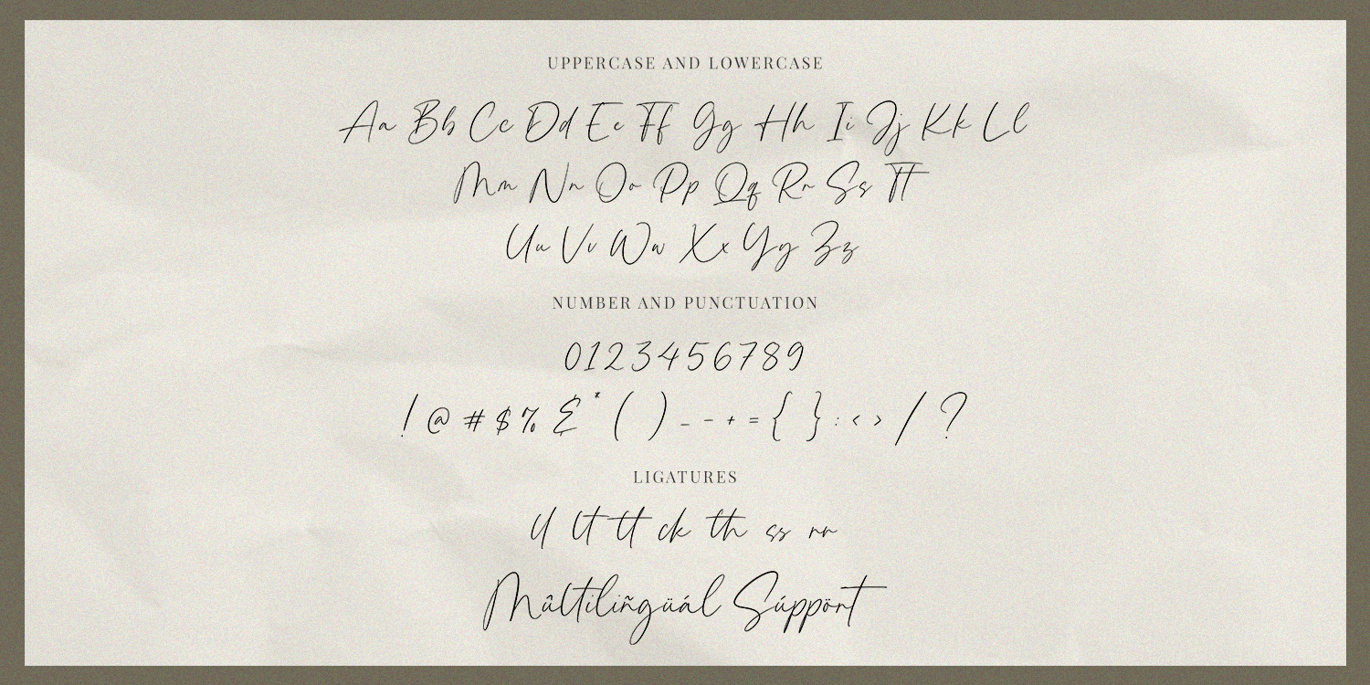 UPPERCASE AND LOWERCASE
Aa Bb Cc Dd Ee Ff Gg Hh Ii Jj Kk Ll
Mm Nn Oo Pp Qq Rr Ss Tt
Uu Vv Ww Xx Yy Zz
NUMBER AND PUNCTUATION
0123456789
! @ # $ % & * ( ) _ - + = { } : < > / ?
LIGATURES
ll lt tt ck th ss rr
Múltiliñgüál Súppört